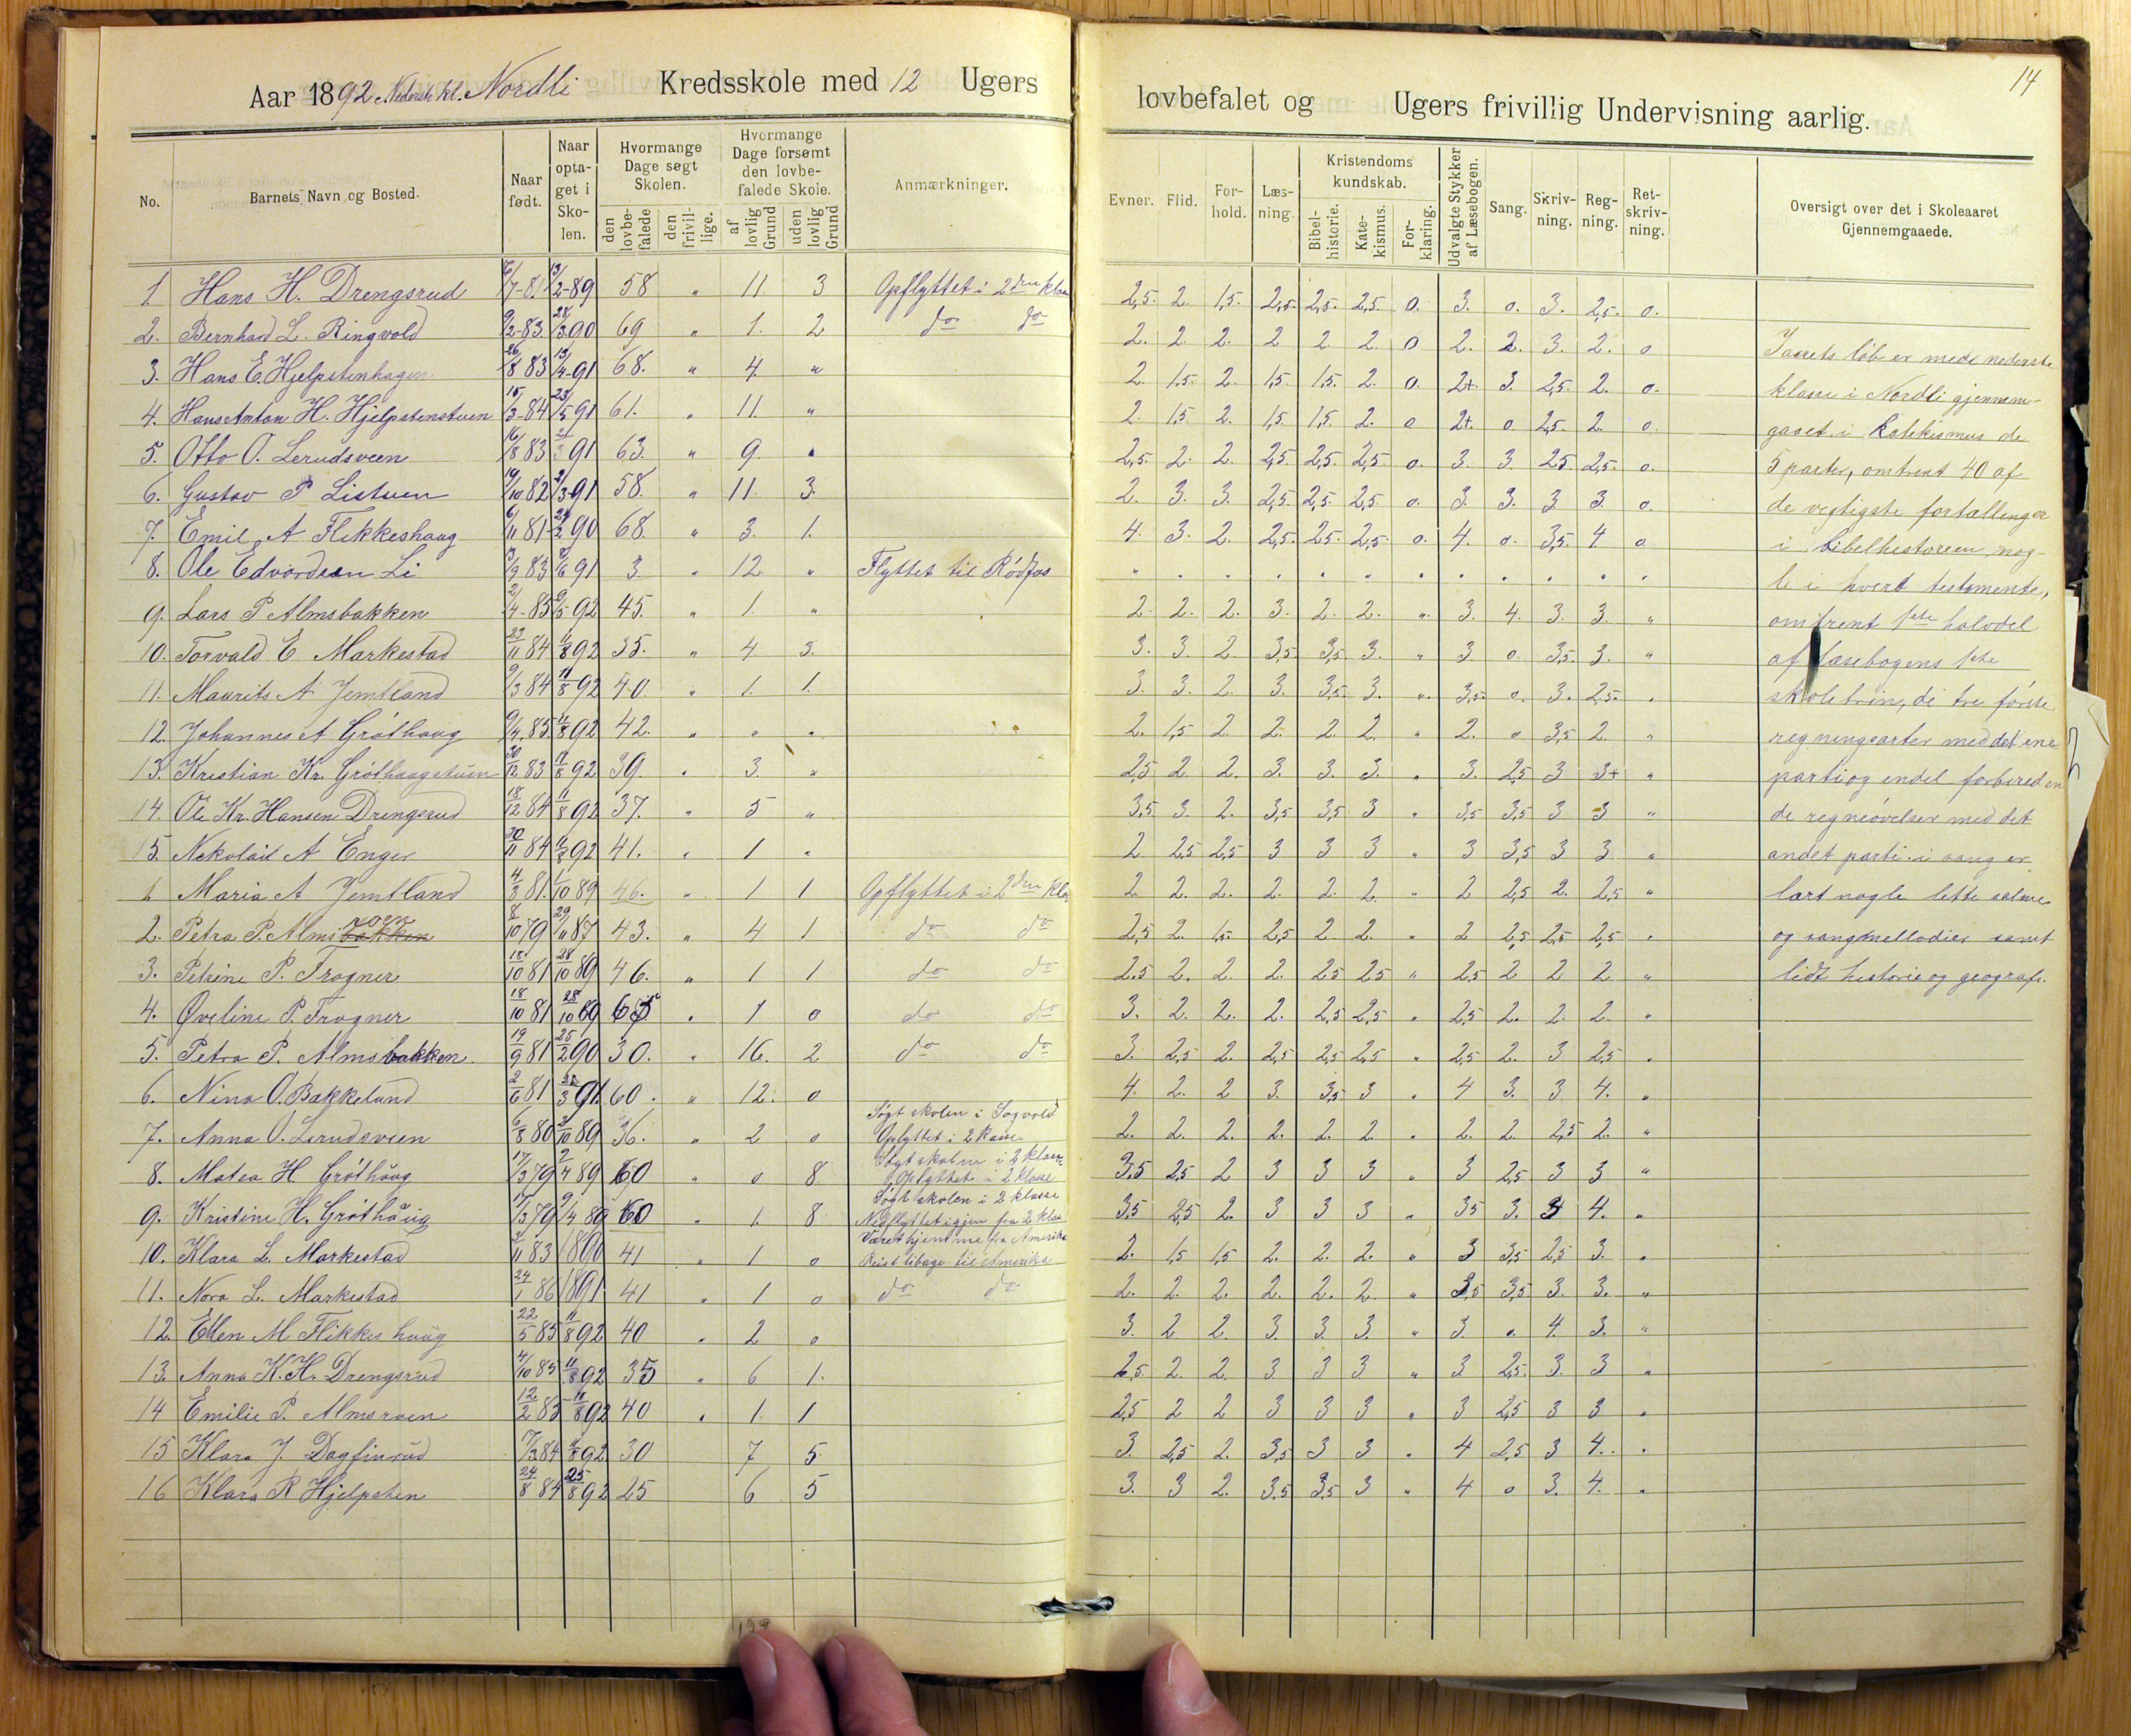 Aar 1892 Nederste kl. Nordli Kredsskole med 12 Ugers
No.
Barnets Navn og Bosted.
Naar født.
Naar optaget i Skolen.
Hvormange Dage søgt Skolen.
den lovbefalede
den frivillige.
Hvormange Dage forsømt den lovbefalede Skole.
af lovlig Grund
uden lovlig Grund
Anmærkninger.
1 Hans H. Drengsrud 6/7-81 13/2-89 58 " 11. 3 Opflyttet i 2den klas
2. Bernhard L. Ringvold 9/2-83 28/3 90 69 " 1. 2 do do
3. Hans E. Hjelpstenhagen 26/8 83 13/4-91 68. " 4. "
4. Hans Anton H. Hjelpstenstuen 15/3-84 23/5 91 61. " 11. "
5. Otto O. Lerudsveen 16/8 83 21/3 91 63. " 9. "
6. Gustav P Listuen 19/10 82 2/3-91 58. " 11. 3.
7. Emil A Flikkeshaug 6/11 81 24/2 90 68. " 3. 1.
8. Ole Edvardsen Li 13/9 83 8/6 91 3 " 12 " Flyttet til Rødfos
9. Lars P Almsbakken 2/4-85 9/5 92 45. " 1. "
10. Torvald E Markestad 23/11 84 11/8 92 35. " 4 3.
11. Maurits A Jemtland 9/3 84 11/8 92 40. " 1. 1.
12. Johannes A Gróthaug 9/4 85 11/8 92 42. " " "
13. Kristian Kr. Gróthaugstuen 30/12 83 11/8 92 39. " 3. "
14. Ole Kr. Hansen Drengsrud 18/12 84 11/8 92 37. " 5 "
15. Nekolai A Enger 30/11 84 11/8 92 41. " 1 "
1 Maria A Jemtland 4/3 81. 1/10 89 46. " 1 1 Opflyttet i 2den Klas
2. Petra P. Almsbakken roen 8/10 79 29/11 87 43. " 4 1 do do
3. Petrine P. Trogner 18/10 81 28/10 89 46. " 1 1 do do
4. Oveline P. Trogner 18/10 81 28/10 89 " 1 0 do do
5. Petra P. Almsbakken 19/9 81 25/2 90 30. " 16. 2 do do
6. Nina O. Bakkelund 2/6 81 3 91 60. " 12. 0
Søgt skolen i Sogvold
7. Anna O. Lerudsveen 6/8 80 2/10 89 36. " 2 0 Opflyttet i 2 klasse
Søgt skolen i 2 klasse
8. Matea H. Gróthaug 17/3 79 2/4 89 60 " 0 8 Opflyttet i 2 klasse
Søgt skolen i 2 klasse
9. Kristine H. Gróthaug 17/3 79 9/4 89 60 " 1. 8 Nedflyttet igjen fra 2 klas
Været hjemme fra Amerika
10. Klara L. Markestad 3/11 83 1890 41 " 1 0 Reist tilbage til Amerika
11. Nora L. Markestad 24/1 86 1891 41 " 1 0 do do
12. Ellen M Flikkeshaug 22/5 85 11/8 92 40 " 2 0
13. Anna K. H. Drengsrud 4/10 85 11/8 92 35 " 6 1.
14 Emilie P. Almsroen 12/2 85 11/8 92 40 " 1. 1
15 Klara J. Dagfinrud 17/3 84 11/8 92 30 7 5
16 Klara R Hjelpsten 24/8 84 25/8 92 25 6 5
14
lovbefalet og Ugers frivillig Undervisning aarlig.
Evner.
Flid.
Forhold.
Læsning.
Kristendoms kundskab.
Bibelhistorie.
Katekismus.
Forklaring.
Udvalgte Stykker af Læsebogen.
Sang.
Skrivning.
Regning.
Retskrivning.
Oversigt over det i Skoleaaret Gjennemgaaede.
2,5. 2. 1,5. 2,5. 2,5. 2,5. 0. 3. 0. 3. 2,5. 0.
2. 2. 2. 2 2 2. 0 2. 2. 3. 2. 0
2. 1,5. 2. 1,5. 1,5. 2. 0. 2+. 3. 2,5. 2. 0.
2. 1,5 2. 1,5 1,5. 2. 0 2+. 0 2,5. 2. 0.
2,5. 2. 2. 2,5 2,5. 2,5. 0. 3. 3. 2,5 2,5. 0.
2. 3. 3. 2,5. 2,5. 2,5. 0. 3. 3. 3 3. 0.
4. 3. 2. 2,5. 2,5. 2,5. 0. 4. 0. 3,5. 4 0
" " " " " " " " " " " "
2. 2. 2. 3. 2. 2. " 3. 4. 3. 3. "
3. 3. 2. 3,5 3,5 3. " 3 0. 3,5. 3. "
3. 3. 2. 3. 3,5. 3. " 3,5. 0. 3. 2,5. "
2. 1,5 2. 2. 2. 2. " 2. 0 3,5 2. "
2,5 2. 2. 3. 3. 3. " 3. 2,5 3 3+ "
3,5 3. 2. 3,5 3,5 3 " 3,5 3,5 3 3 "
2 2,5 2,5 3 3 3 " 3 3,5 3 3 "
2 2. 2. 2. 2. 2. " 2 2,5 2. 2,5 "
2,5 2. 1,5. 2,5 2 2. " 2 2,5 2,5 2,5 "
2,5 2. 2. 2. 2,5 2,5 " 2,5 2 2 2 "
3. 2. 2. 2. 2,5 2,5 " 2,5 2. 2. 2. "
3. 2,5 2. 2,5 2,5 2,5 " 2,5 2. 3 2,5 "
4. 2. 2 3. 3,5 3 " 4 3. 3 4. "
2. 2. 2. 2. 2. 2. " 2. 2. 2,5 2. "
3,5 2,5 2 3 3 3 " 3 2,5 3 3 "
3,5 2,5 2. 3 3 3 " 3,5 3. 3 4. "
2. 1,5 1,5 2. 2. 2. " 3 3,5 2,5 3. "
2. 2. 2. 2. 2. 2. " 3,5 3,5 3. 3. "
3. 2 2. 3. 3. 3. " 3. 0. 4. 3. "
2,5. 2. 2. 3 3 3 " 3 2,5. 3. 3 "
2,5 2 2 3 3 3 " 3 2,5 3 3 "
3. 2,5 2. 3,5 3 3 " 4 2,5 3 4. "
3. 3 2. 3,5 3,5 3 " 4 0 3. 4. "
I aarets løb er med nederste
klasse i Nordli gjennem-
gaaet i katekismus de
5 parter, omtrent 40 af
de vigtigste fortællinger
i bibelhistorien nog-
le i hvert testamente,
omtrent 1ste halvdel
af læsebogens 1ste
skoletrin, de tre første
regningsarter med det ene
parti og endel forbereden
de regneøvelser med det
andet parti. i sang er
lært nogle lette salme
og sangmellodier samt
lidt historie og geografi.